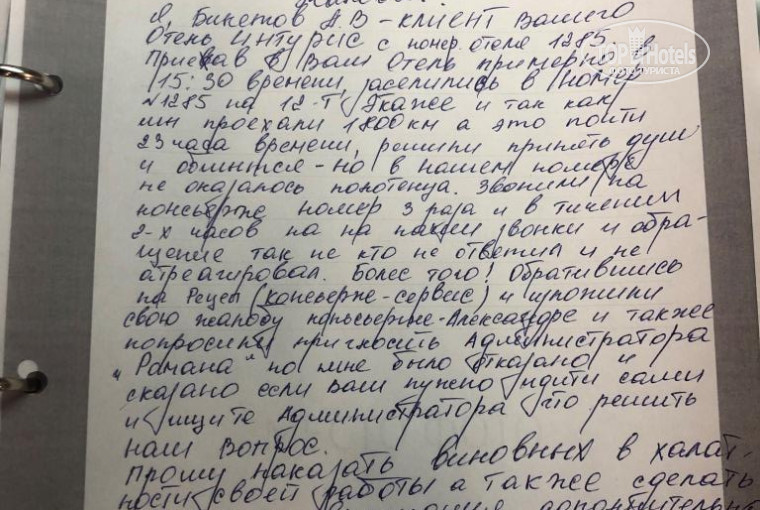 Я, Бикетов А.В – клиент Вашего
Отель Интурис с номер. отеля 1285.
Приехав в Ваш Отель примерно в
15:30 времени, заселились в номер
№1285 на 12-т Этаже и так как
мы проехали 1800 км а это почти
23 часа времени, решили принять душ
и обмыться – но в нашем номере
не оказалось полотенца. Звонили на
консьерже номер 3 раза и в течении
2-х часов на на наши звонки и обра-
щение так не кто не ответил и не
атреагировал. Более того! Обратившись
на Рецеп (консьерже-сервис) и изложили
свою жалобу консьерже-Александре и также
попросили пригласить Администратора
"Романа" но мне было отказано и
сказано если Вам нужно идити сами
и ищите Администратора что решить
наш вопрос.
Прошу наказать виновных в халат-
ности своей работы а также сделать
дополнительно
TOP Hotels